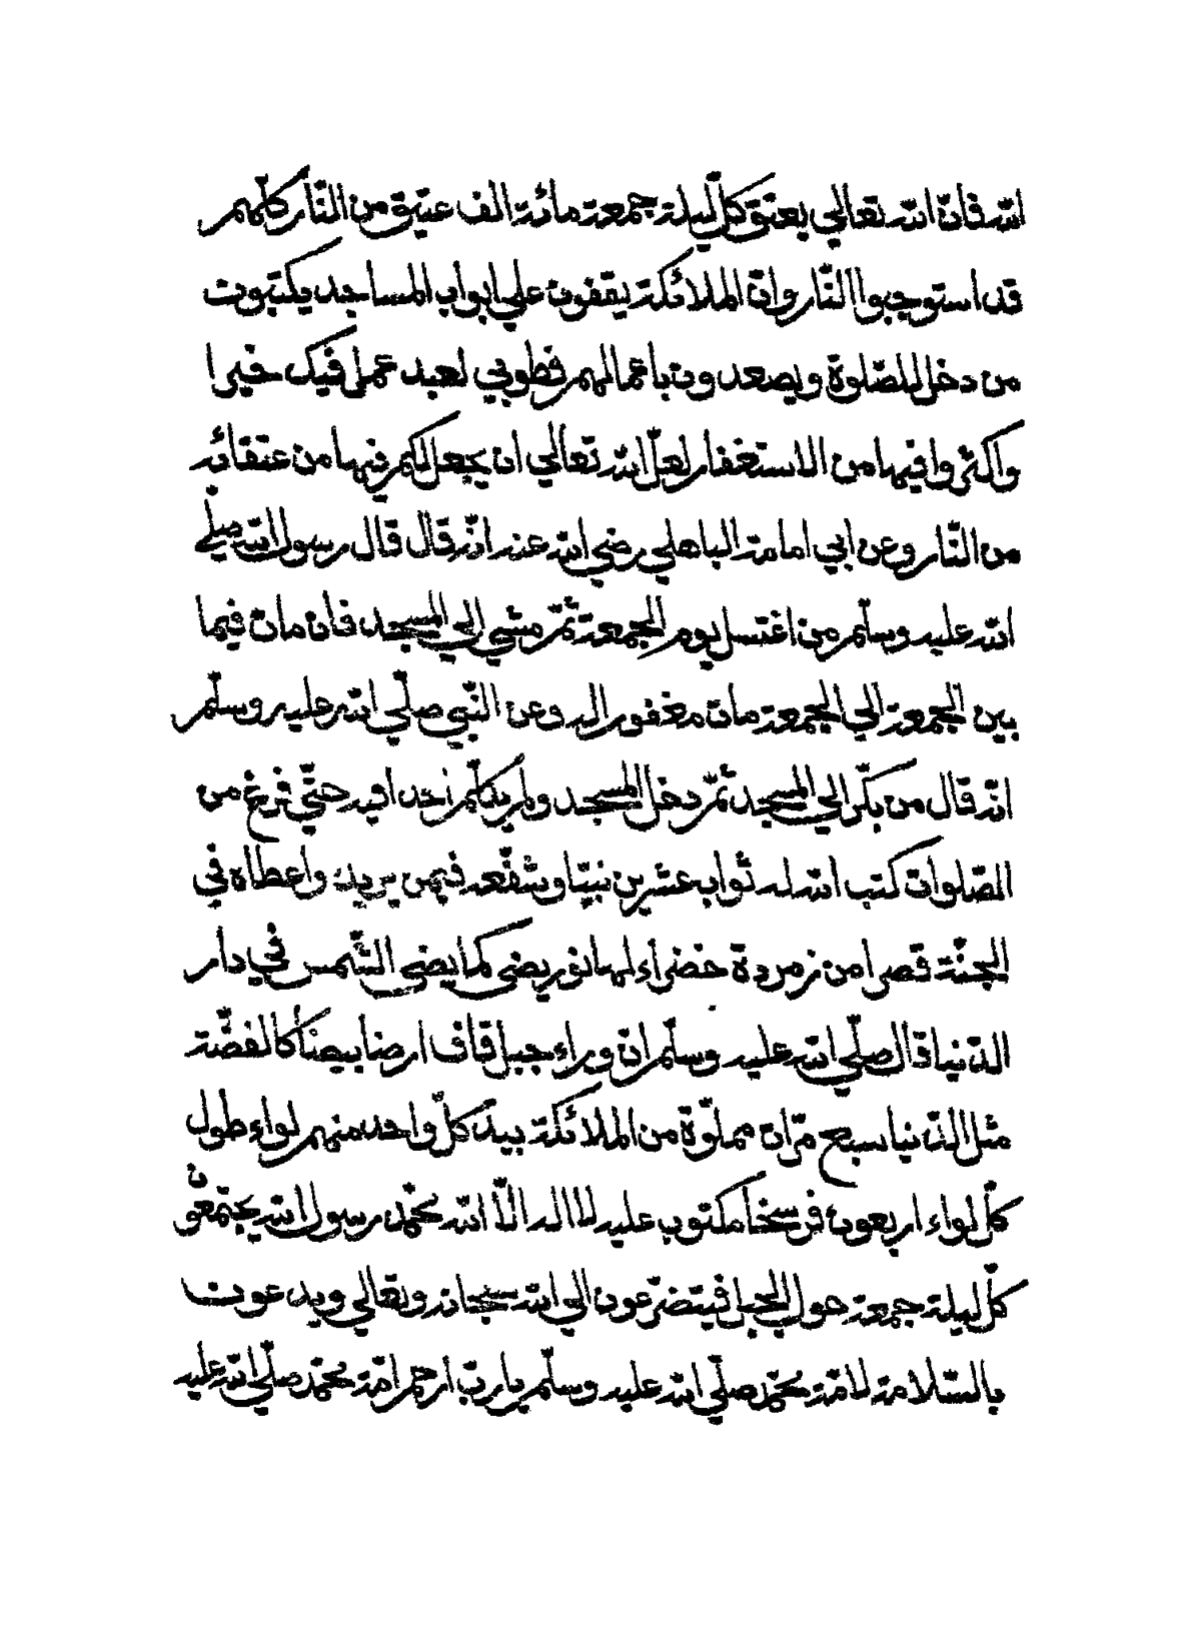 الله فانّ الله تعالي يعتق كلّ ليلة جمعة مائة الف عتيق من النّار كلّهم
قد استوجبوا النّار وانّ الملائكة يقفون علي ابواب المساجد يكتبون
من دخل للصّلوة ويصعدون باعمالهم فطوبي لعبد عمل فيك خيرا
واكثروا فيها من الاستغفار لعلّ الله تعالي ان يجعلكم فيها من عتقائه
من النّار وعن ابي امامة الباهلي رضي الله عنه انّه قال قال رسول الله صلّي
الله عليه وسلّم من اغتسل يوم الجمعة ثمّ مشي الي المسجد فان مات فيما
بين الجمعة الي الجمعة مات مغفورا له وعن النّبي صلّي الله عليه وسلّم
انّه قال من بكّر الي المسجد ثمّ دخل المسجد ولم يتكلّم احدا فيه حتّي فرغ من
الصّلوات كتب الله له ثواب عشرين نبيّا وشفّعه فيمن يريد واعطاه في
الجنّة قصرا من زمردة خضراء لها نور يضي كما يضي الشّمس في دار
الدّنيا قال صلّي الله عليه وسلّم انّ وراء جبل قاف ارضا بيضاء كالفضّة
مثل الدّنيا سبع مرّات مملوّة من الملائكة بيد كلّ واحد منهم لواء طول
كلّ لواء اربعون فرسخا مكتوب عليه لا اله الّا الله محمّد رسول الله يجتمعون
كلّ ليلة جمعة حول الجبل فيتضرّعون الي الله سبحانه وتعالي ويدعون
بالسّلامة لامّة محمّد صلّي الله عليه وسلّم يا ربّ ارحم امّة محمّد صلّي الله عليه